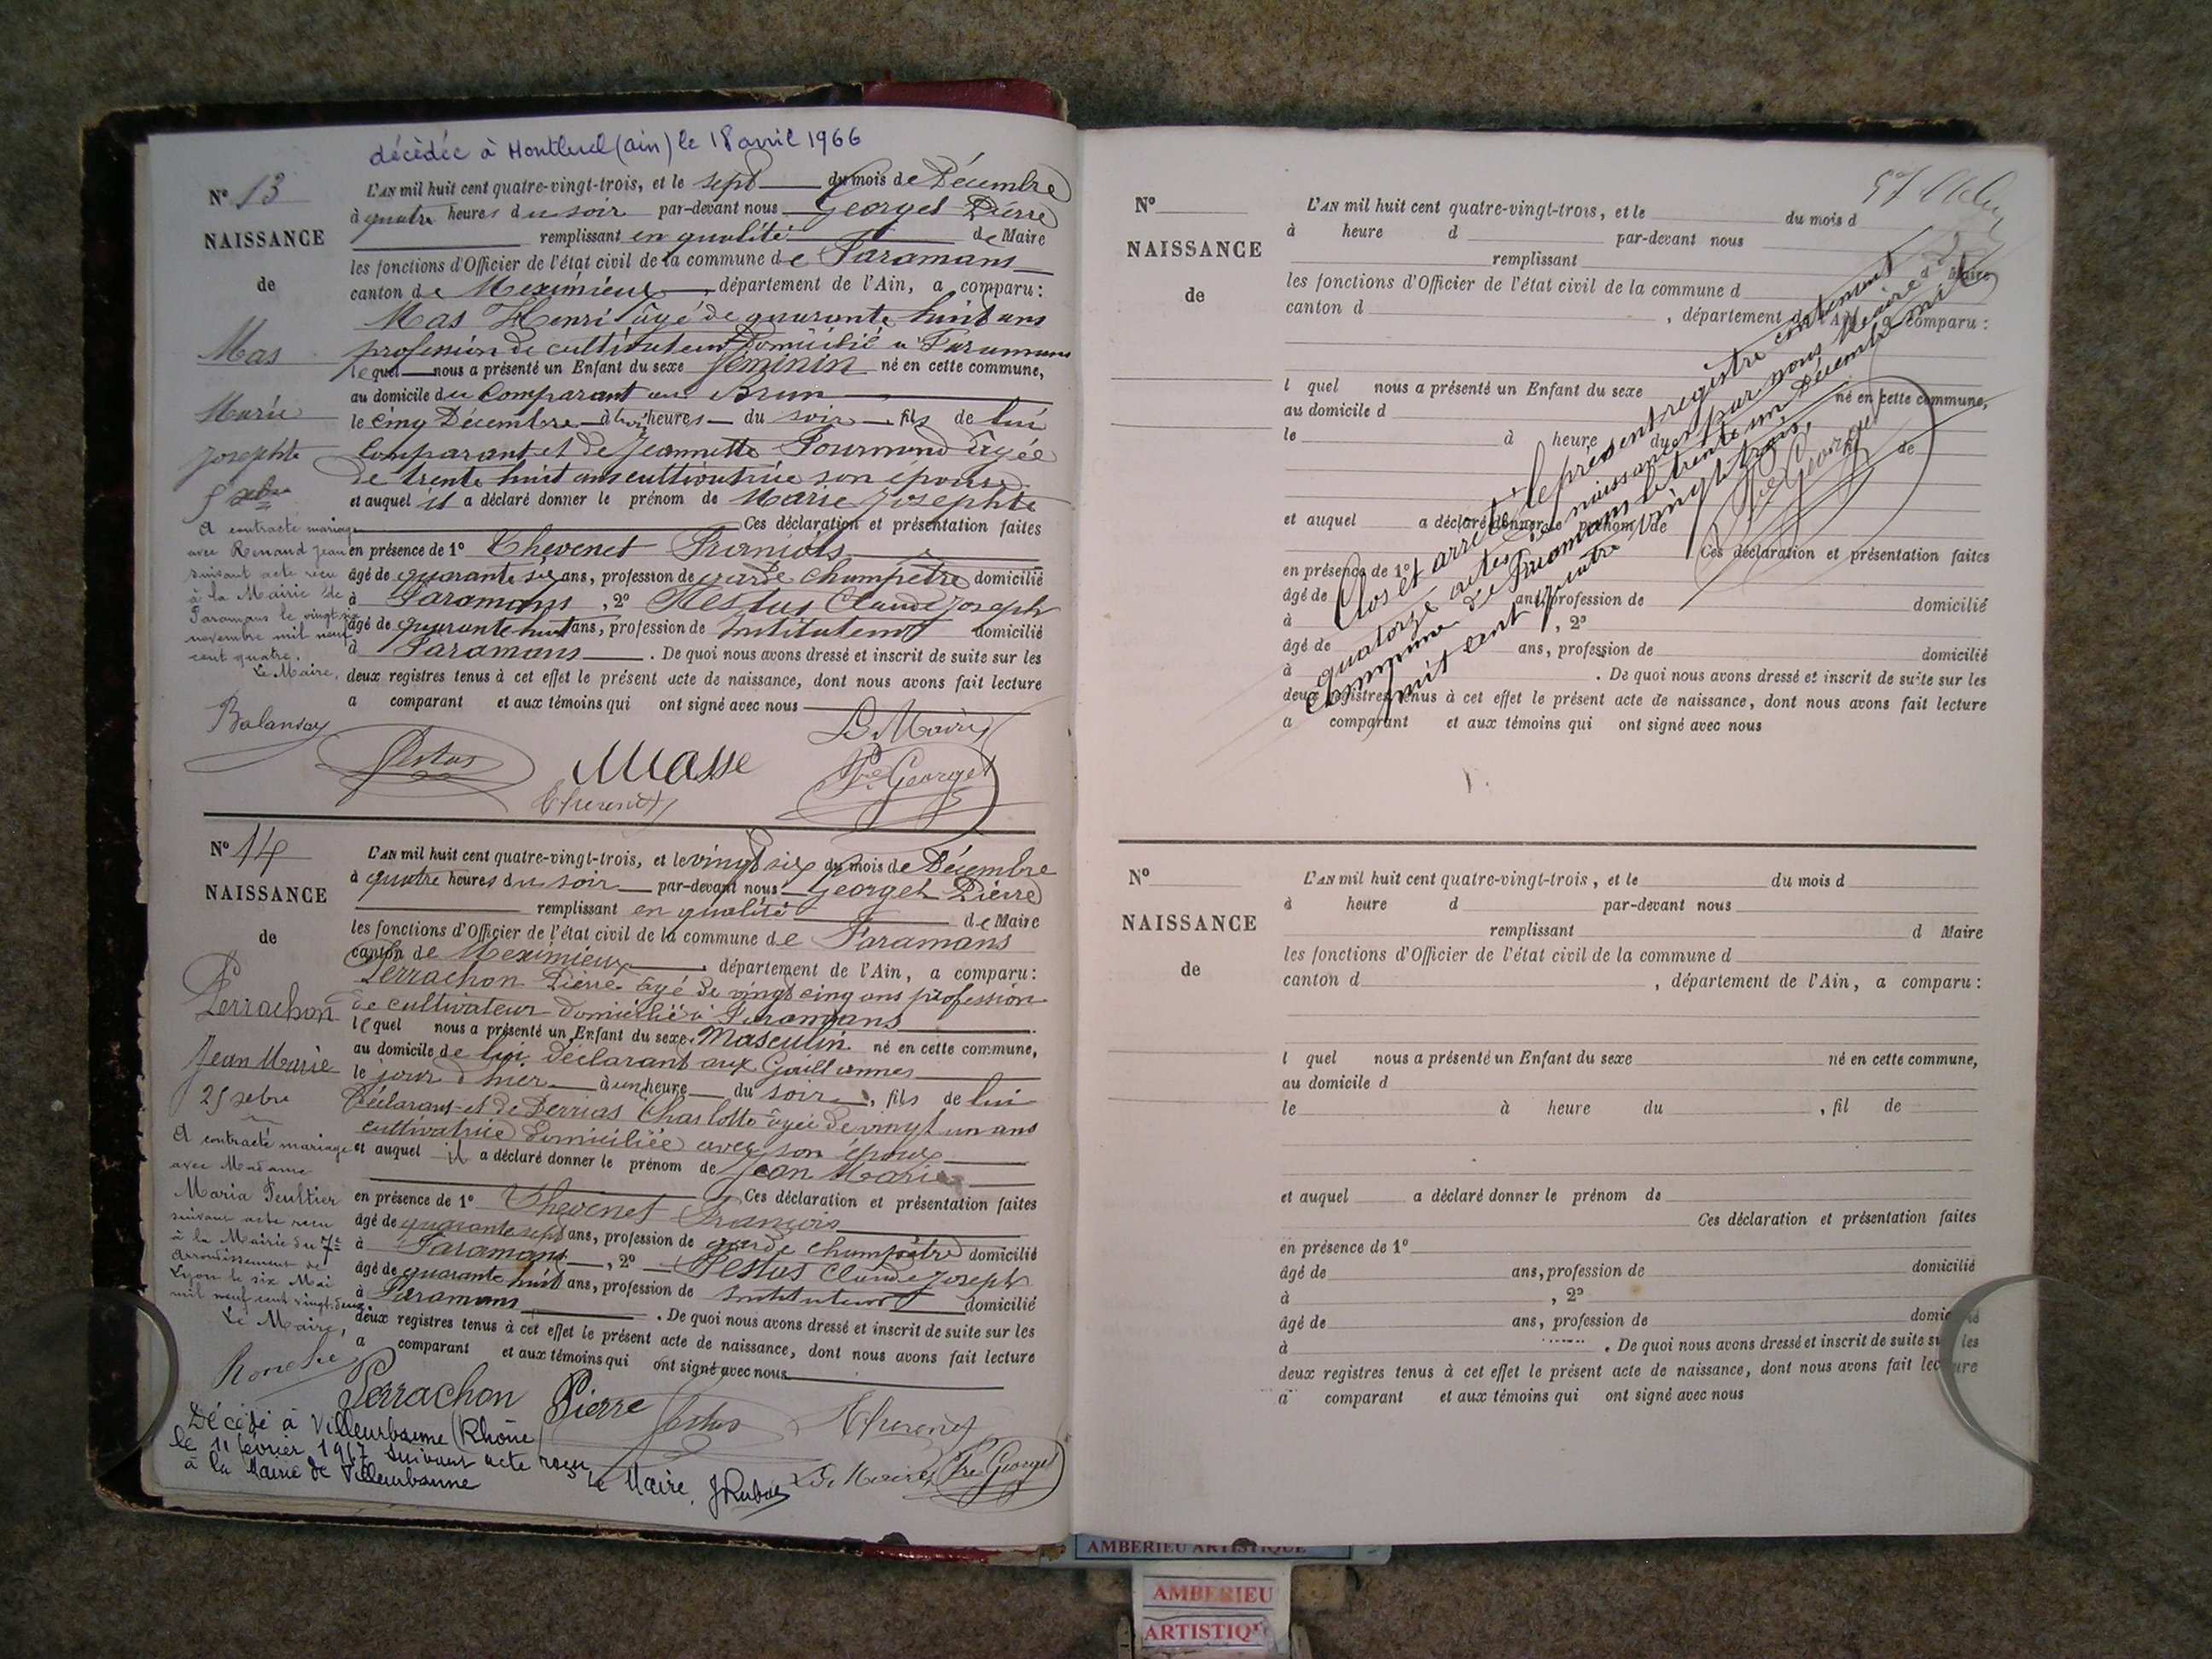 décédée à Montluel (ain) le 18 avril 1966
N° 13
NAISSANCE
de
Mas
Marie
Josephte
5 xbre
A contracté mariage
avec Renaud Jean
suivant acte reçu
à la Mairie de
Faramans le vingt six
novembre mil neuf
cent quatre.
Le Maire,
L'AN mil huit cent quatre-vingt-trois, et le sept du mois de Décembre
à quatre heures du soir par-devant nous Georget Pierre
remplissant en qualité de Maire
les fonctions d'Officier de l'état civil de la commune de Faramans
canton de Meximieux, département de l'Ain, a comparu :
Mas Henri âgé de quarante huit ans
profession de cultivateur domicilié à Faramans
lequel nous a présenté un Enfant du sexe féminin né en cette commune,
au domicile du Comparant au Brun
le cinq Décembre à heures du soir, fils de lui
Comparant et de Jeannette Fourmond âgée
de trente huit ans cultivatrice son épouse
et auquel il a déclaré donner le prénom de Marie Josephte
Ces déclaration et présentation faites
en présence de 1° Thevenet François
âgé de quarante six ans, profession de garde champêtre domicilié
à Faramans, 2° Festus Claude Joseph
âgé de quarante huit ans, profession de Instituteur domicilié
à Faramans. De quoi nous avons dressé et inscrit de suite sur les
deux registres tenus à cet effet le présent acte de naissance, dont nous avons fait lecture
a comparant et aux témoins qui ont signé avec nous
Le Maire
Balanday
Festus
Masse
Thevenet
Pre Georget
N° 14
NAISSANCE
de
Perrachon
Jean Marie
25 xbre
A contracté mariage
avec Madame
Maria Peultier
suivant acte reçu
à la Mairie du 7e
Arrondissement de
Lyon le six Mai
mil neuf cent vingt-deux.
Le Maire,
L'AN mil huit cent quatre-vingt-trois, et le vingt six du mois de Décembre
à quatre heures du soir par-devant nous Georget Pierre
remplissant en qualité de Maire
les fonctions d'Officier de l'état civil de la commune de Faramans
canton de Meximieux, département de l'Ain, a comparu :
Perrachon Pierre âgé de vingt cinq ans profession
de cultivateur domicilié à Faramans
lequel nous a présenté un Enfant du sexe Masculin né en cette commune,
au domicile de lui déclarant aux Gaillannes
le jour d'hier à une heure du soir, fils de lui
Déclarant et de Derrias Charlotte âgée de vingt un ans
cultivatrice domiciliée avec son époux
et auquel il a déclaré donner le prénom de Jean Marie
Ces déclaration et présentation faites
en présence de 1° Thevenet François
âgé de quarante sept ans, profession de garde champêtre domicilié
à Faramans, 2° Festus Claude Joseph
âgé de quarante huit ans, profession de Instituteur domicilié
à Faramans. De quoi nous avons dressé et inscrit de suite sur les
deux registres tenus à cet effet le présent acte de naissance, dont nous avons fait lecture
a comparant et aux témoins qui ont signé avec nous
Perrachon Pierre
Festus
Thevenet
Le Maire Pre Georget
Décédé à Villeurbanne (Rhône)
le 11 février 1947 suivant acte reçu
à la Mairie de Villeurbanne
Le Maire,
N°
NAISSANCE
de
L'AN mil huit cent quatre-vingt-trois, et le du mois d
à heure d par-devant nous
remplissant d Maire
les fonctions d'Officier de l'état civil de la commune d
canton d , département de l'Ain, a comparu :
l quel nous a présenté un Enfant du sexe né en cette commune,
au domicile d
le à heure du de
et auquel a déclaré donner le prénom de
Ces déclaration et présentation faites
en présence de 1°
âgé de ans, profession de domicilié
à , 2°
âgé de ans, profession de domicilié
à . De quoi nous avons dressé et inscrit de suite sur les
deux registres tenus à cet effet le présent acte de naissance, dont nous avons fait lecture
a comparant et aux témoins qui ont signé avec nous
Clos et arrêté le présent registre contenant
quatorze actes de naissance par nous Maire de la
commune de Faramans le trente un Décembre mil
huit cent quatre vingt trois,
Pre Georget
N°
NAISSANCE
de
L'AN mil huit cent quatre-vingt-trois, et le du mois d
à heure d par-devant nous
remplissant d Maire
les fonctions d'Officier de l'état civil de la commune d
canton d , département de l'Ain, a comparu :
l quel nous a présenté un Enfant du sexe né en cette commune,
au domicile d
le à heure du , fil de
et auquel a déclaré donner le prénom de
Ces déclaration et présentation faites
en présence de 1°
âgé de ans, profession de domicilié
à , 2°
âgé de ans, profession de domicilié
à . De quoi nous avons dressé et inscrit de suite sur les
deux registres tenus à cet effet le présent acte de naissance, dont nous avons fait lecture
a comparant et aux témoins qui ont signé avec nous
AMBERIEU ARTISTIQUE
AMBERIEU
ARTISTIQU